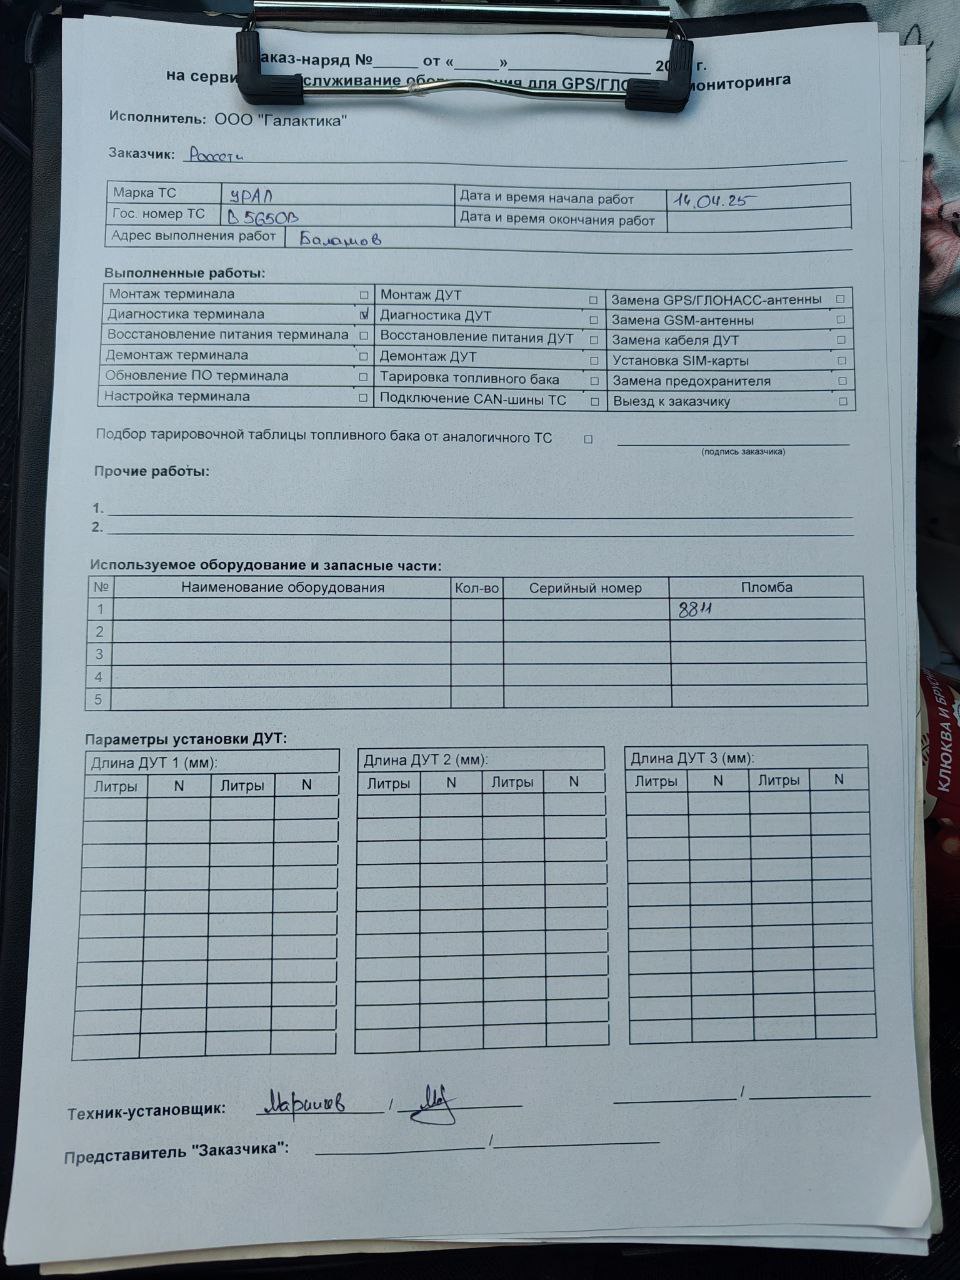 аказ-наряд №_____ от «_____»________________ 20 г.
на серви служивание обо ния для GPS/ГЛО мониторинга
Исполнитель: ООО "Галактика"
Заказчик: Россети
Марка ТС УРАЛ Дата и время начала работ 14.04.25
Гос. номер ТС В565ОВ Дата и время окончания работ
Адрес выполнения работ Балашов
Выполненные работы:
Монтаж терминала □ Монтаж ДУТ □ Замена GPS/ГЛОНАСС-антенны □
Диагностика терминала ☑ Диагностика ДУТ □ Замена GSM-антенны □
Восстановление питания терминала □ Восстановление питания ДУТ □ Замена кабеля ДУТ □
Демонтаж терминала □ Демонтаж ДУТ □ Установка SIM-карты □
Обновление ПО терминала □ Тарировка топливного бака □ Замена предохранителя □
Настройка терминала □ Подключение CAN-шины ТС □ Выезд к заказчику □
Подбор тарировочной таблицы топливного бака от аналогичного ТС □
(подпись заказчика)
Прочие работы:
1.
2.
Используемое оборудование и запасные части:
№ Наименование оборудования Кол-во Серийный номер Пломба
1 8811
2
3
4
5
Параметры установки ДУТ:
Длина ДУТ 1 (мм): Длина ДУТ 2 (мм): Длина ДУТ 3 (мм):
Литры N Литры N Литры N Литры N Литры N Литры N
Техник-установщик: / /
Представитель "Заказчика": /
КЛЮКВА И БРУСН